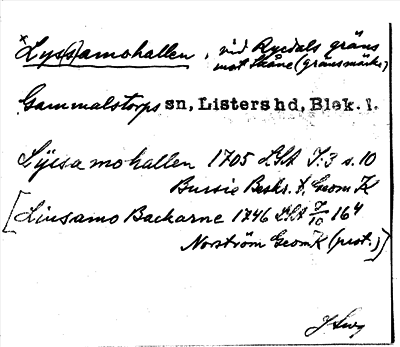 *Lys(s)amohallen, vid Ryedals gräns
mot Skåne (gränsmärke)
Gammalstorps sn, Listers hd, Blek. l.
Lÿsa mohallen 1705 LSA I:3 s.10
Bursie Beskr. t. Geom K
[Liusamo Backarne 1746 LSA 164
Norström Geom K (prot.)]